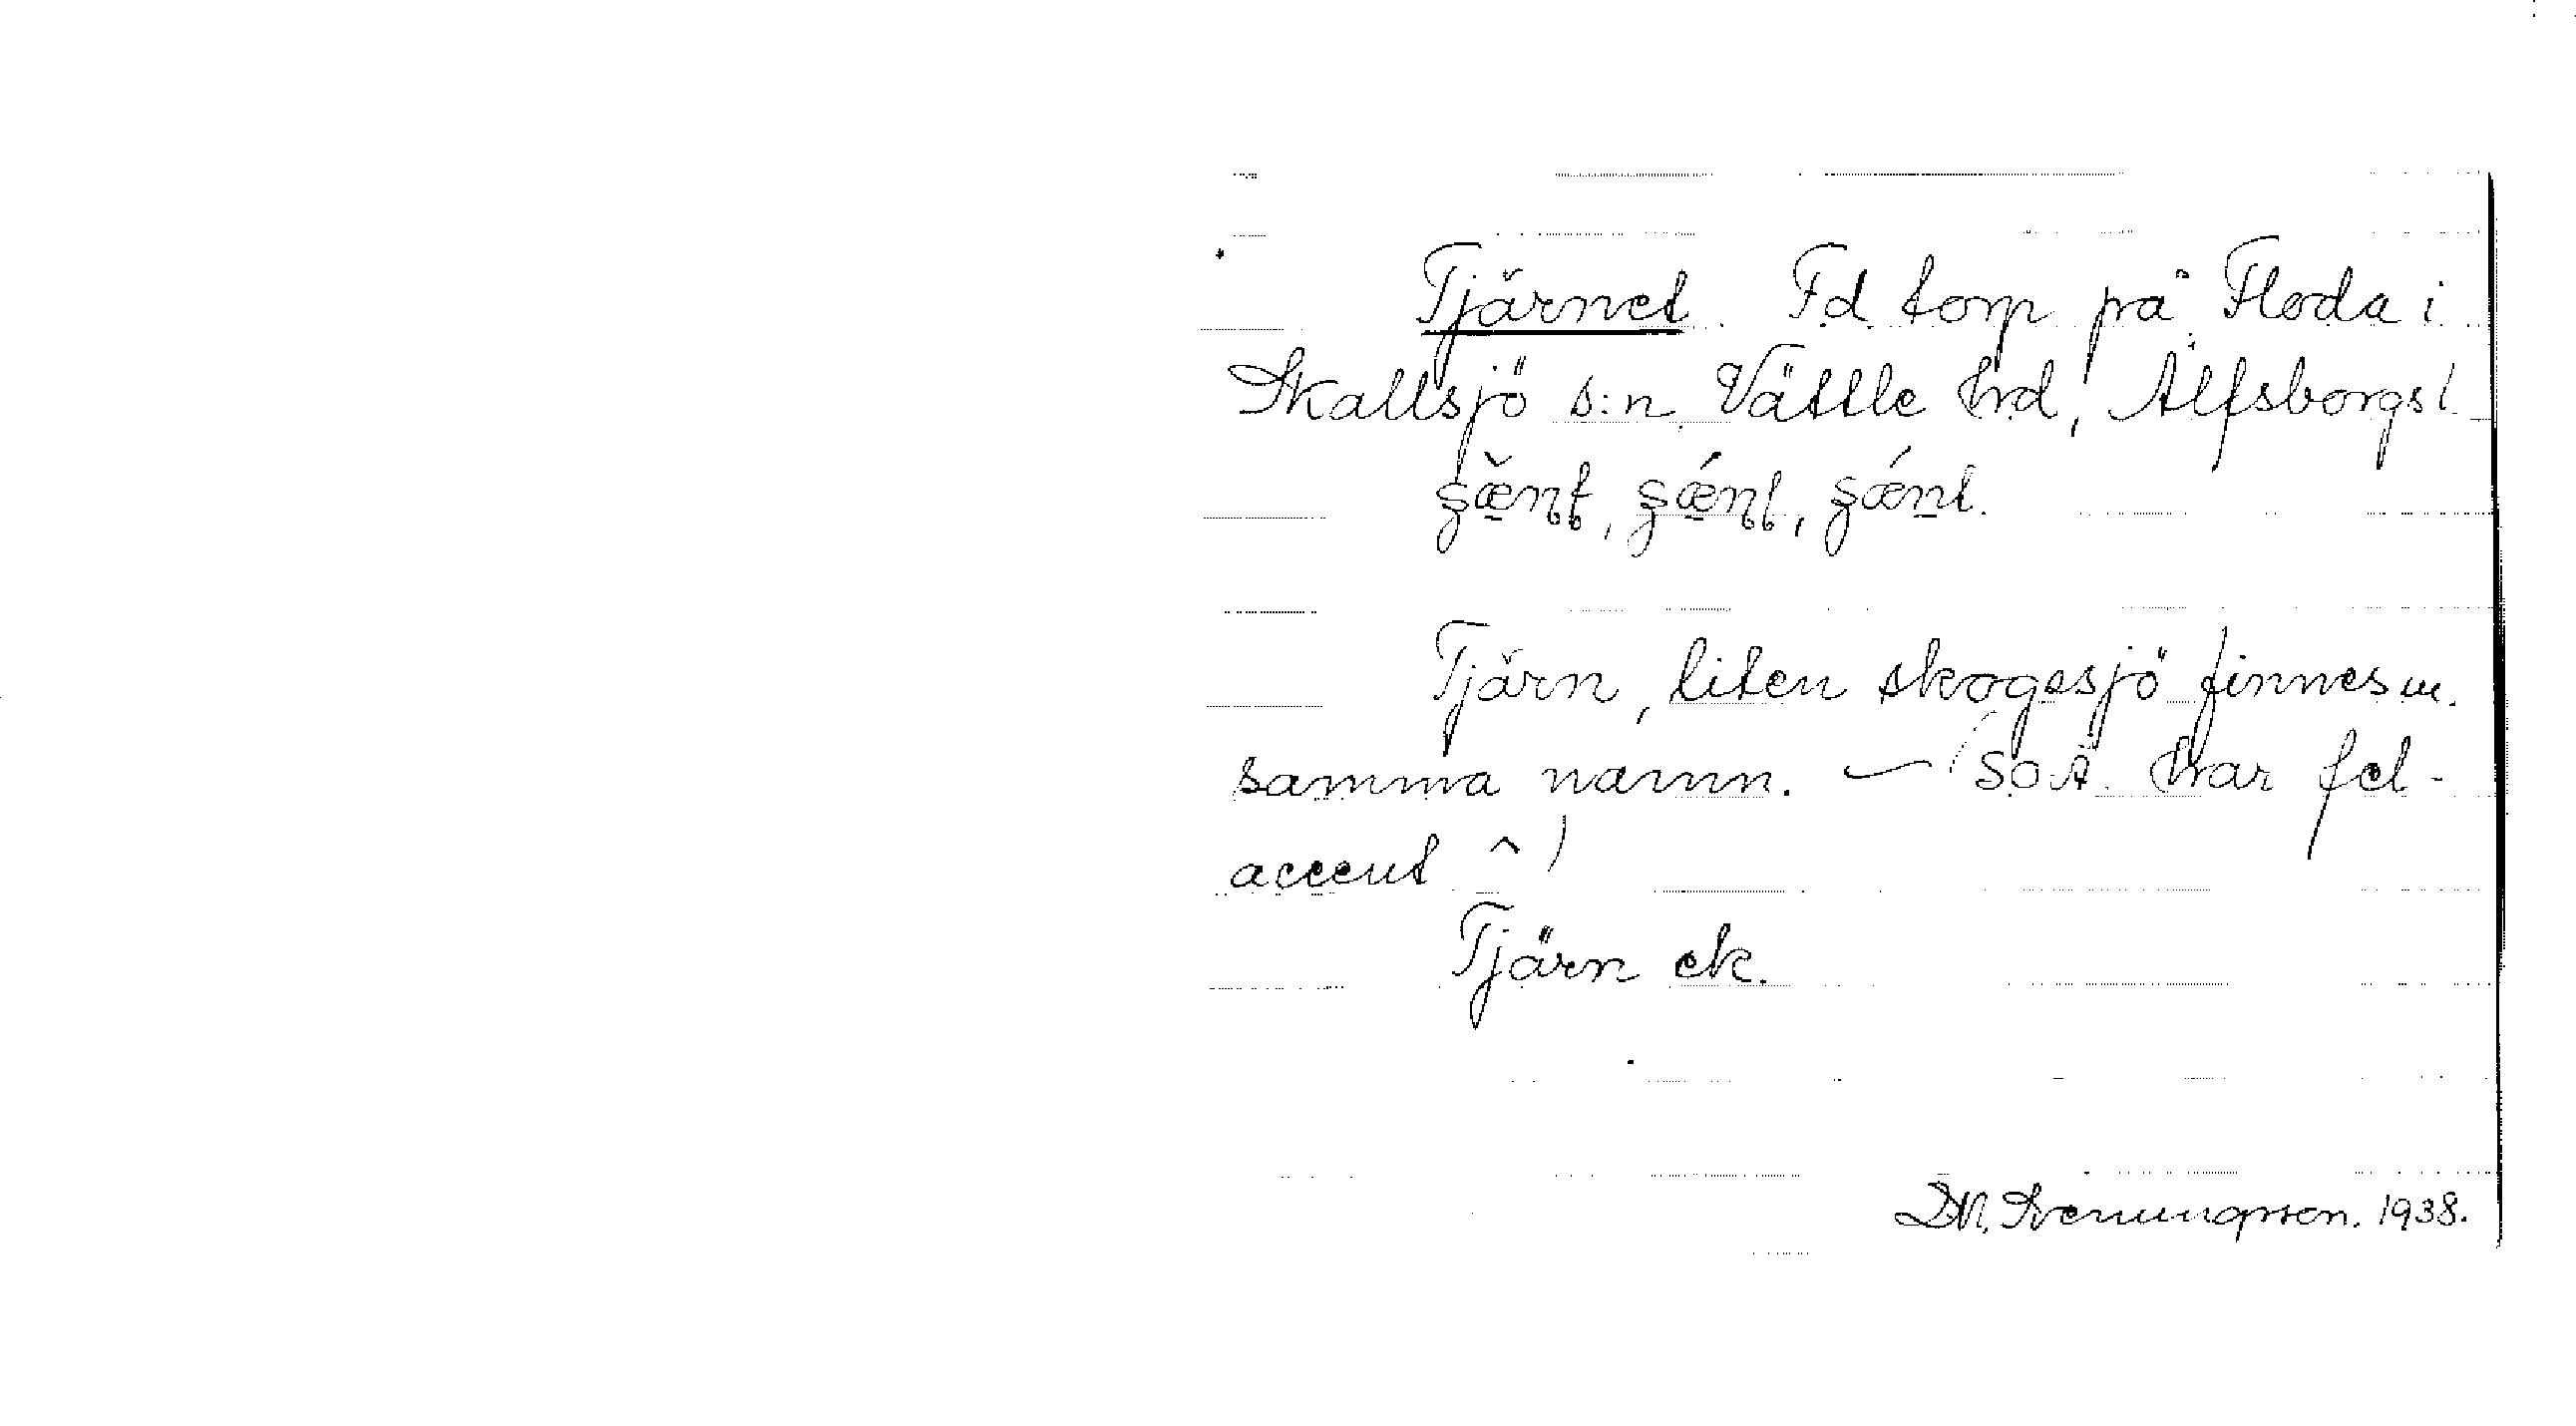 Tjärnet. F.d. torp på Floda i
Skallsjö s:n, Vättle hrd, Älfsborgs l.
Tjärn, liten skogssjö finnes m.
samma namn. — (SOÄ. har fel-
accent ^)
Tjärn ek.
D.M. Svenungsson. 1938.